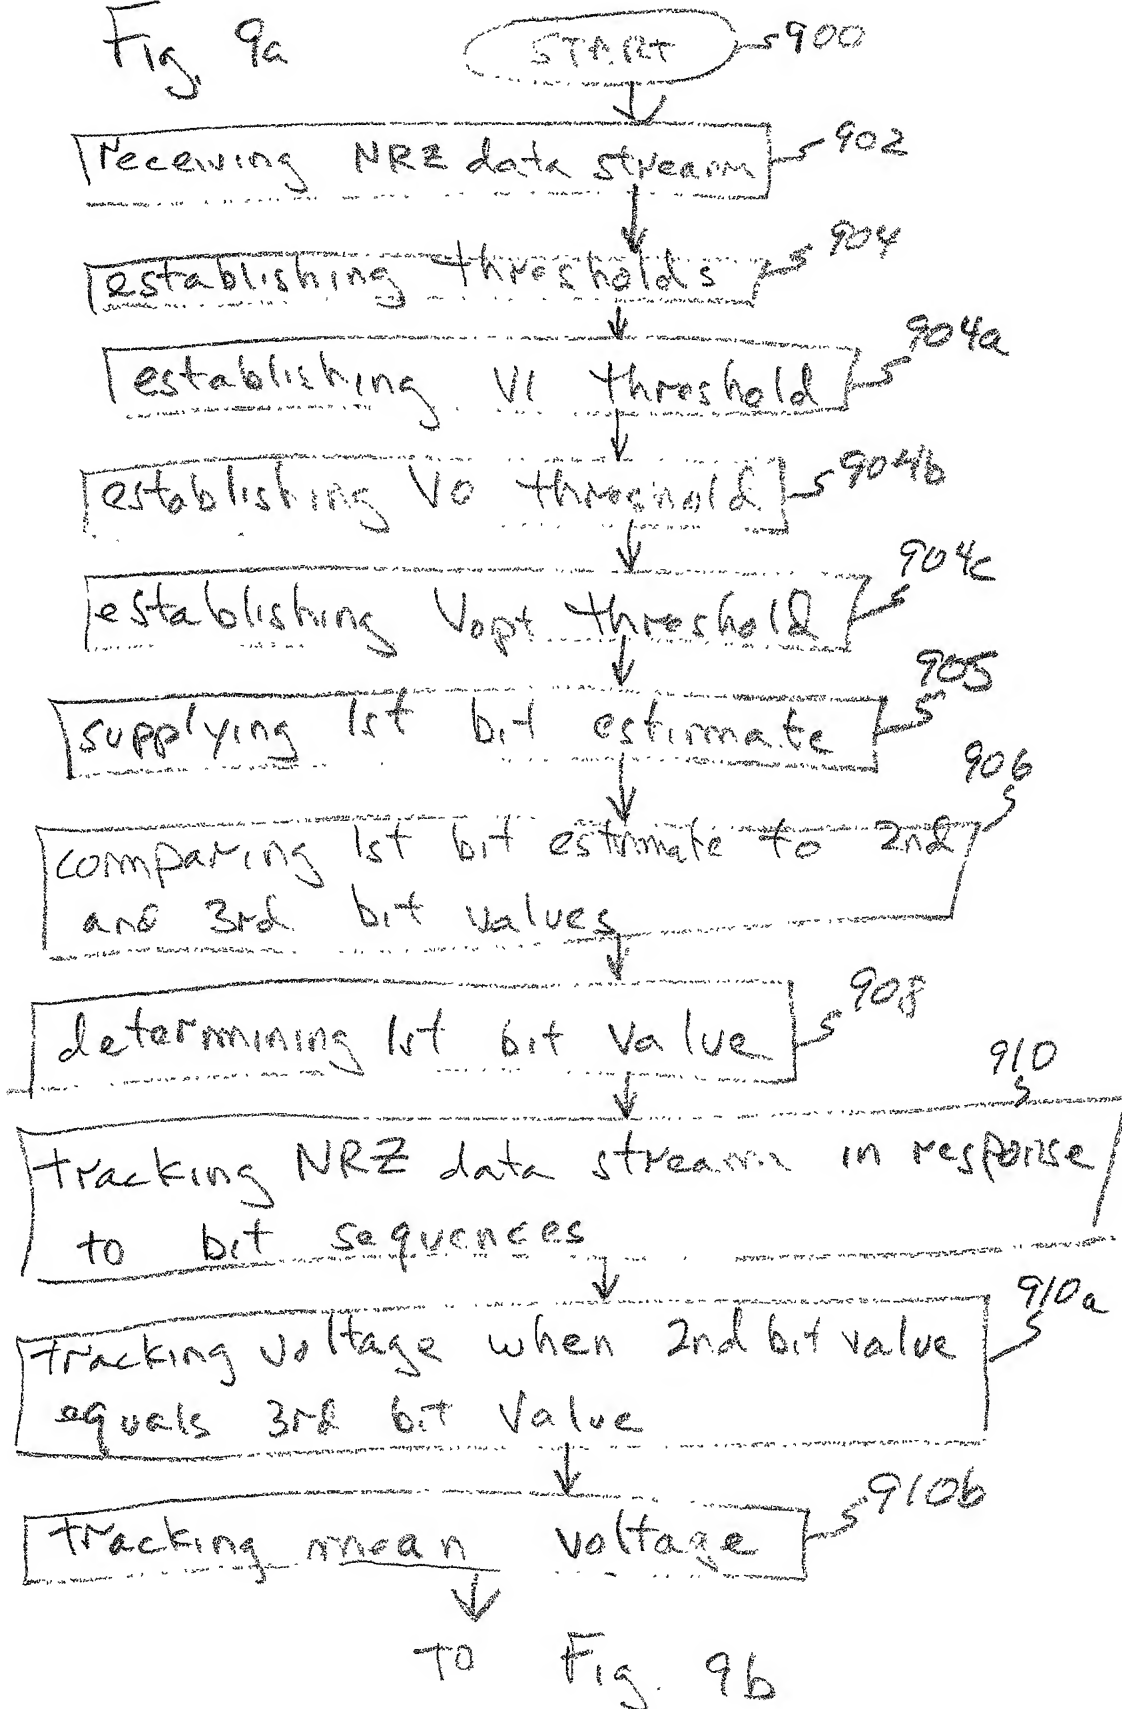 Fig. 9a
START 900
receiving NRZ data stream 902
establishing thresholds 904
establishing V1 threshold 904a
establishing V0 threshold 904b
establishing Vopt threshold 904c
supplying 1st bit estimate 905
906
comparing 1st bit estimate to 2nd
and 3rd bit values
determining 1st bit value 908
910
tracking NRZ data stream in response
to bit sequences
910a
tracking voltage when 2nd bit value
equals 3rd bit value
tracking mean voltage 910b
TO Fig. 9b